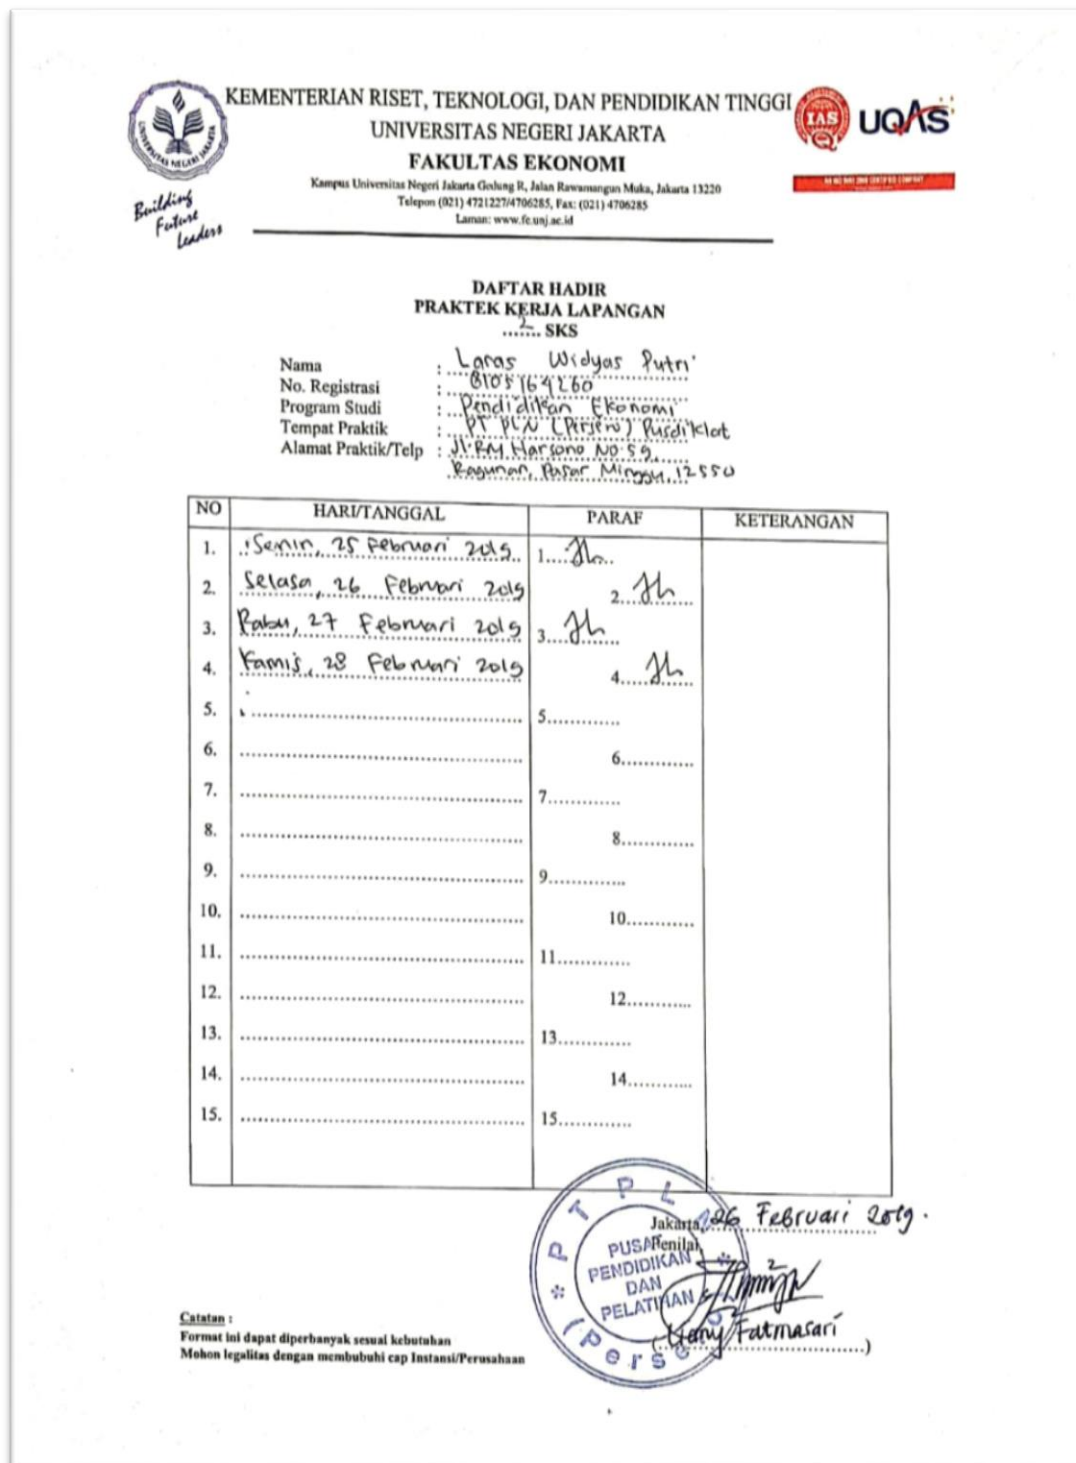 KEMENTERIAN RISET, TEKNOLOGI, DAN PENDIDIKAN TINGGI
UNIVERSITAS NEGERI JAKARTA
FAKULTAS EKONOMI
Kampus Universitas Negeri Jakarta Gedung R, Jalan Rawamangun Muka, Jakarta 13220
Telepon (021) 4721227/4706285, Fax: (021) 4706285
Laman: www.fe.unj.ac.id
UNIVERSITAS NEGERI JAKARTA
Building
Future
Leaders
IAS
UQAS
DAFTAR HADIR
PRAKTEK KERJA LAPANGAN
..2.. SKS
Nama : Laras Widyas Putri
No. Registrasi : 8105164260
Program Studi : Pendidikan Ekonomi
Tempat Praktik : PT PLN (Persero) Pusdiklat
Alamat Praktik/Telp : Jl. RM Harsono No. 59
Ragunan, Pasar Minggu, 12550
NO HARI/TANGGAL PARAF KETERANGAN
1. Senin, 25 Februari 2019 1.
2. Selasa, 26 Februari 2019 2.
3. Rabu, 27 Februari 2019 3.
4. Kamis, 28 Februari 2019 4.
5. 5.
6. 6.
7. 7.
8. 8.
9. 9.
10. 10.
11. 11.
12. 12.
13. 13.
14. 14.
15. 15.
Jakarta, 26 Februari 2019.
Penilai,
PT PLN
PUSAT
PENDIDIKAN
DAN
PELATIHAN
(Persero)
(Heny Fatmasari)
Catatan :
Format ini dapat diperbanyak sesuai kebutuhan
Mohon legalitas dengan membubuhi cap Instansi/Perusahaan